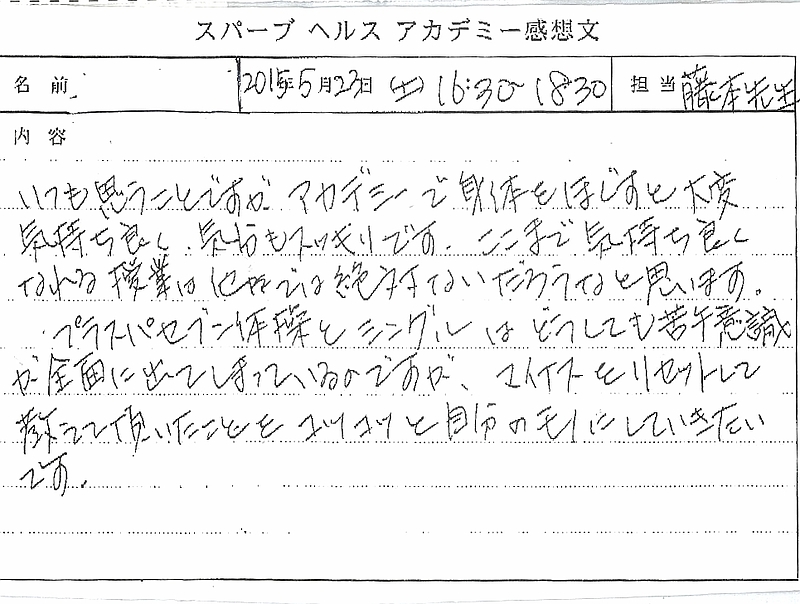 スパーブ ヘルス アカデミー感想文
名 前 2015年5月23日 (土) 16:30~18:30 担 当 藤本先生
内 容
いつも思うことですが アカデミーで身体をほぐすと大変
気持ち良く、気分もスッキリです。ここまで気持ち良く
なれる授業は他では絶対ないだろうなと思います。
プラスパセブン体操とシングルはどうしても苦手意識
が全面に出てしまっているのですが、マイナスをリセットして
教えて頂いたことをコツコツと自分のモノにしていきたい
です。